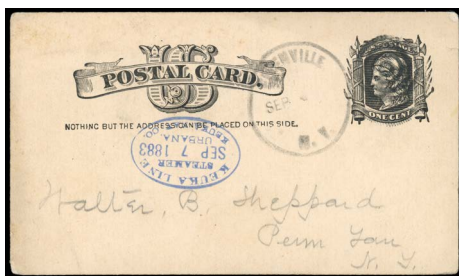 US
POSTAL CARD.
NOTHING BUT THE ADDRESS CAN BE PLACED ON THIS SIDE.
SEP
N. Y.
ONE CENT
KEUKA LINE
STEAMER
SEP 7 1883
URBANA
Walter B. Sheppard
Penn Yan
N. Y.